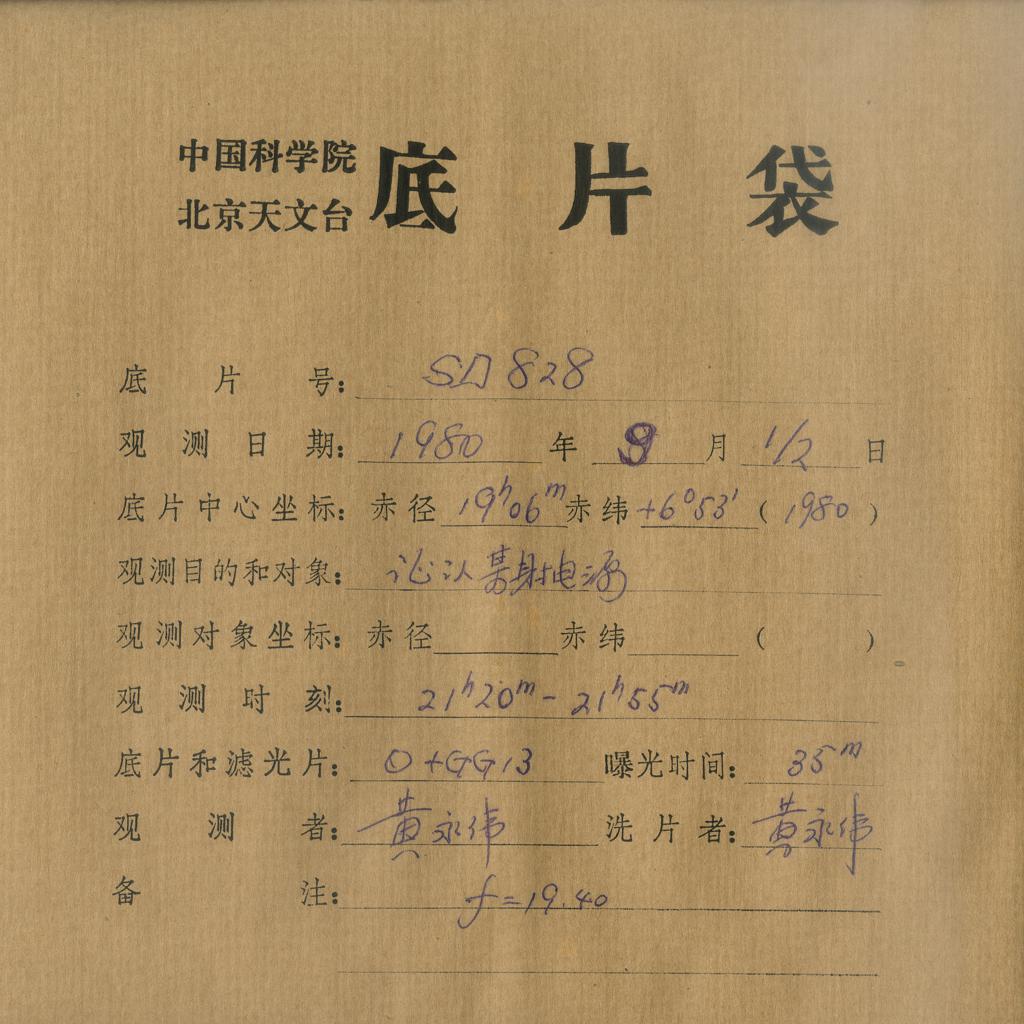 中国科学院
北京天文台 底片袋
底片号: SD 828
观测日期: 1980 年 9 月 1/2 日
底片中心坐标: 赤径 19h06m 赤纬 +6°53' ( 1980 )
观测目的和对象: 证认某射电源
观测对象坐标: 赤径 赤纬 ( )
观测时刻: 21h20m - 21h55m
底片和滤光片: O + GG13 曝光时间: 35m
观测者: 黄永伟 洗片者: 黄永伟
备注: f = 19.40